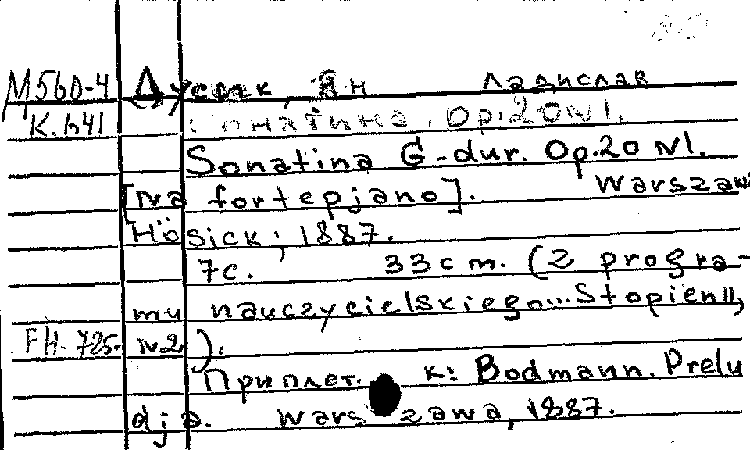 М560-4 Дусек, Ян Ладислав
К.641 Сонатина, Op.20 N1.
Sonatina G-dur. Op.20 N1.
[Na fortepjano]. Warszawa
Hösick, 1887.
7с. 33cm. (Z progra-
mu nauczycielskiego... Stopień II,
FH-725- N2).
Приплет. к: Bodmann. Prelu
dja. Warszawa, 1887.